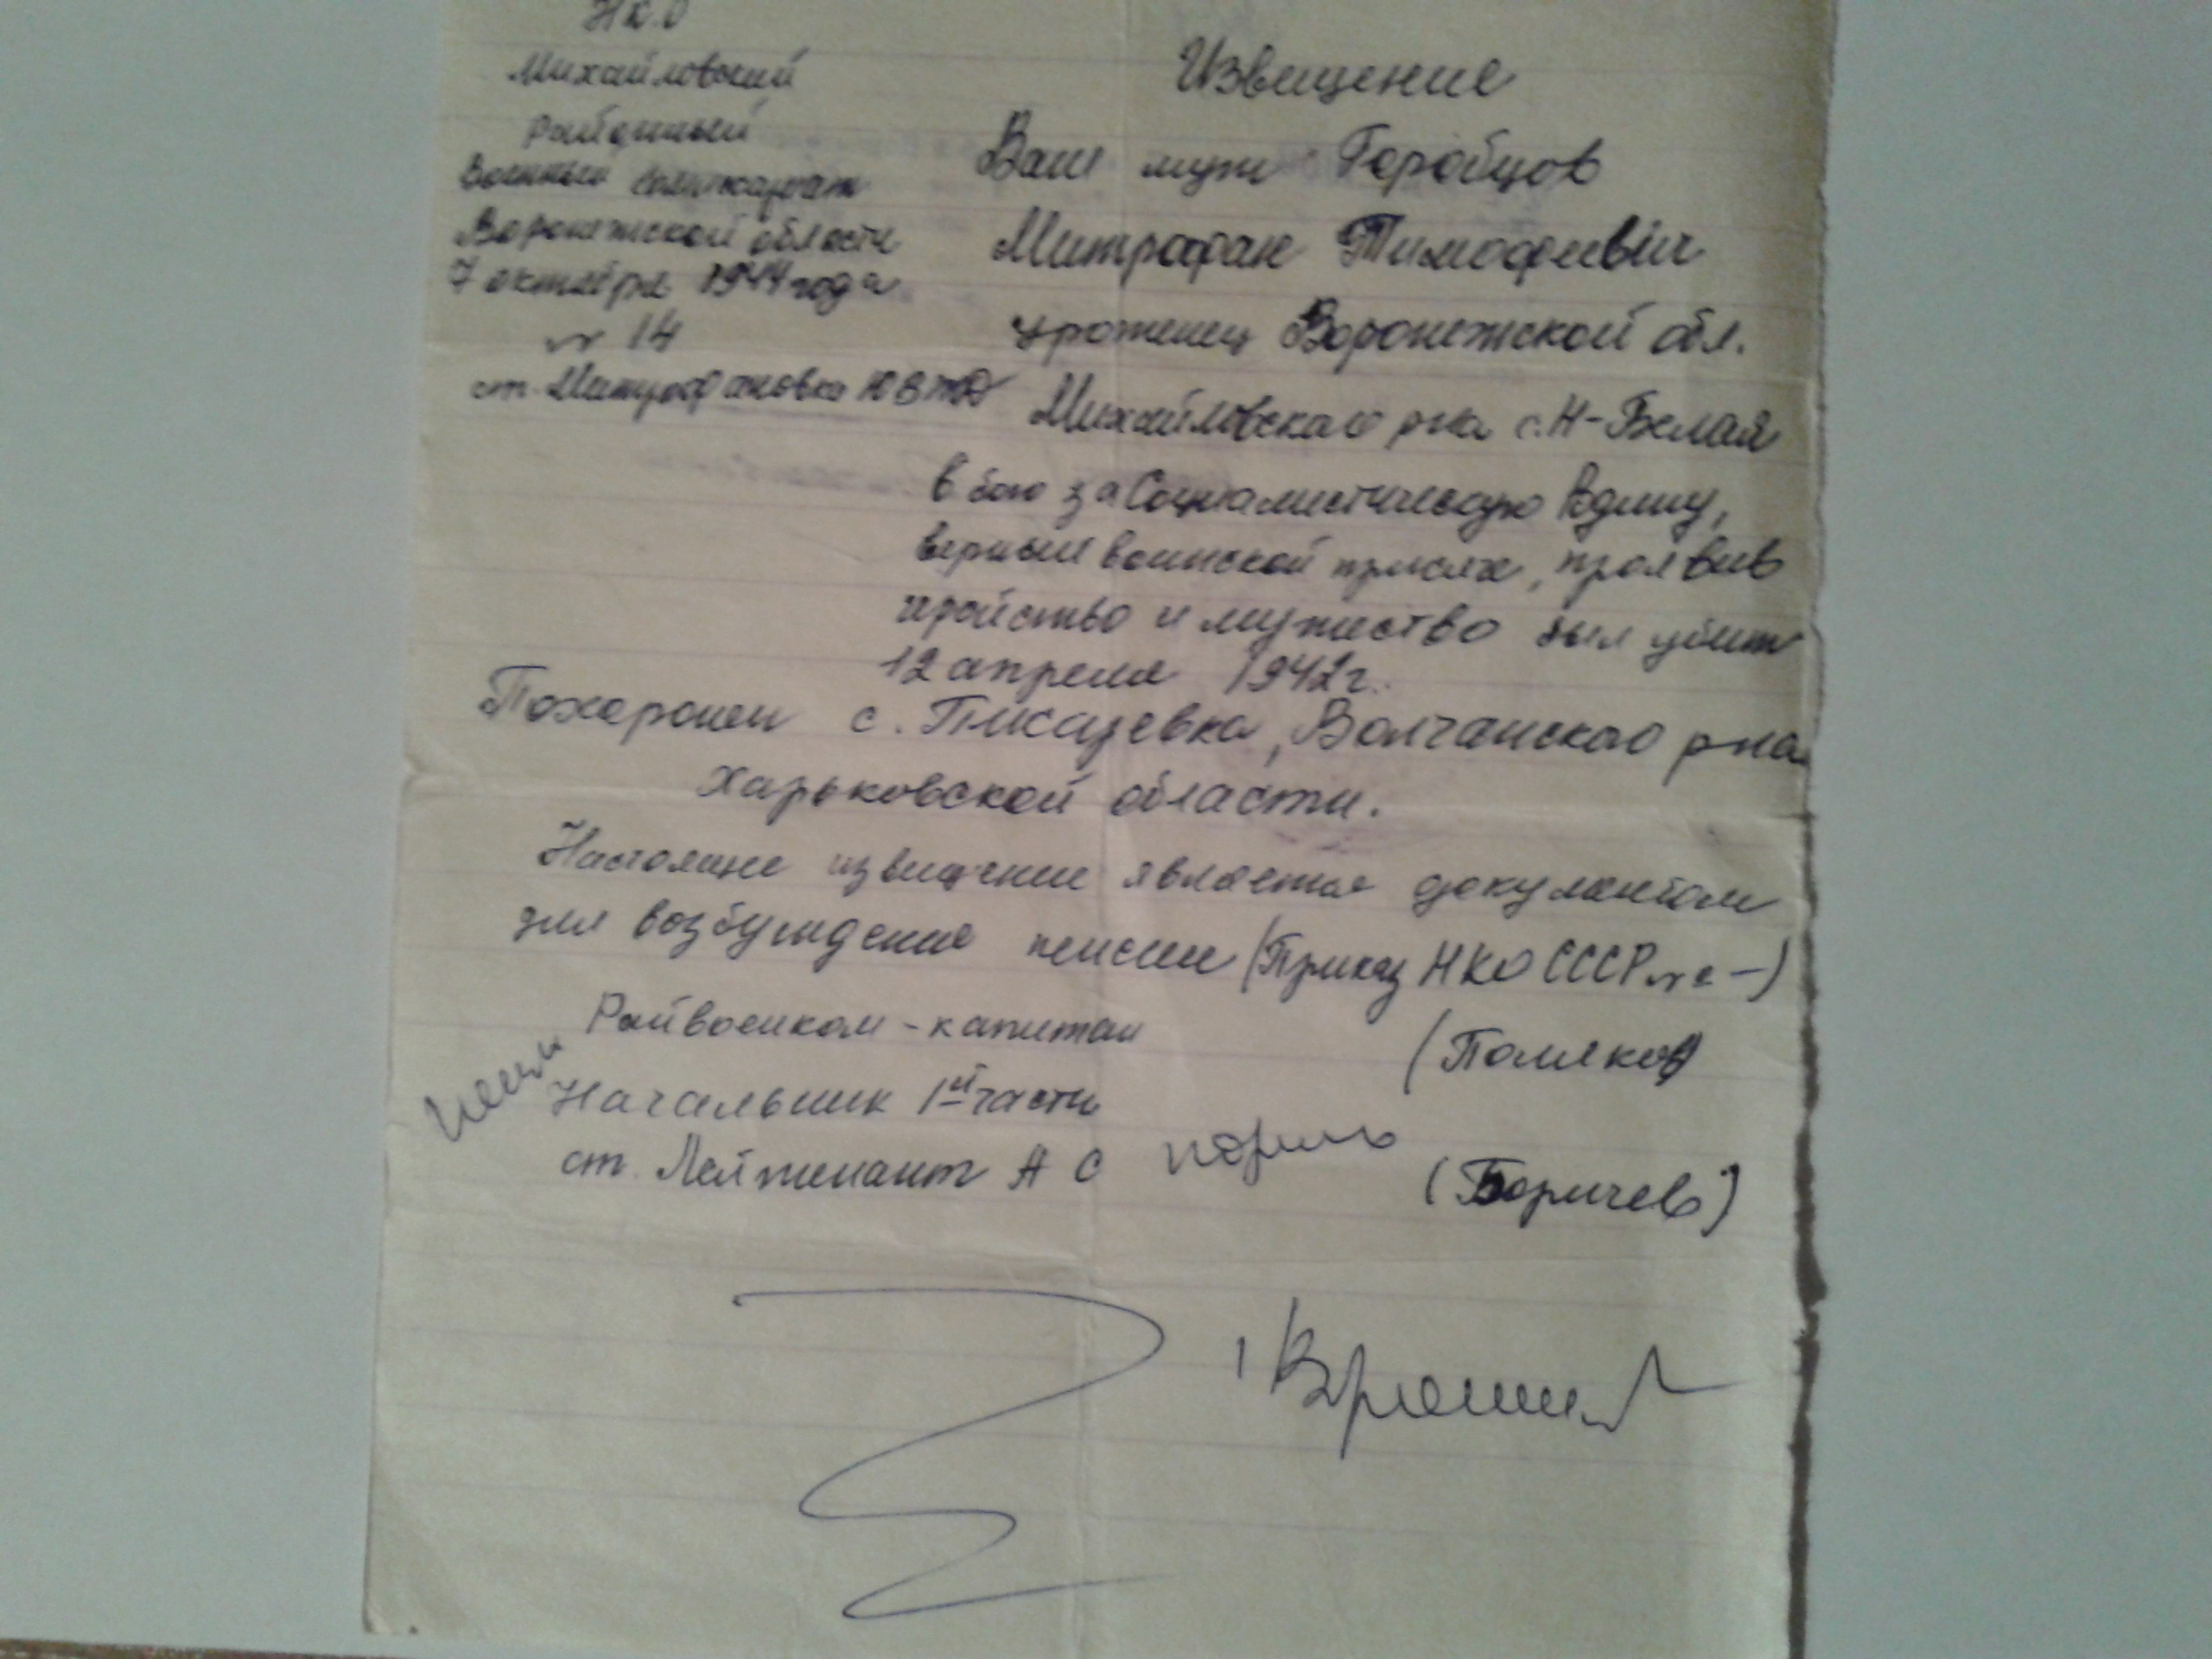 Н.К.О
Михайловский
районный
Военный комиссариат
Воронежской области
7 октября 1944 года
№ 14
ст. Митрофановка ЮВЖД
Извещение
Ваш муж Горобцов
Митрофан Тимофеевич
уроженец Воронежской обл.
Михайловского р-на с. Н-Белая
в бою за Социалистическую Родину,
верный воинской присяге, проявив
геройство и мужество был убит
12 апреля 1942 г.
Похоронен с. Писаревка, Волчанского р-на
Харьковской области.
Настоящее извещение является документом
для возбуждения пенсии (Приказ НКО СССР № -)
Райвоенком - капитан (Поляков)
Начальник 1й части
ст. Лейтенант А С (Боричев)